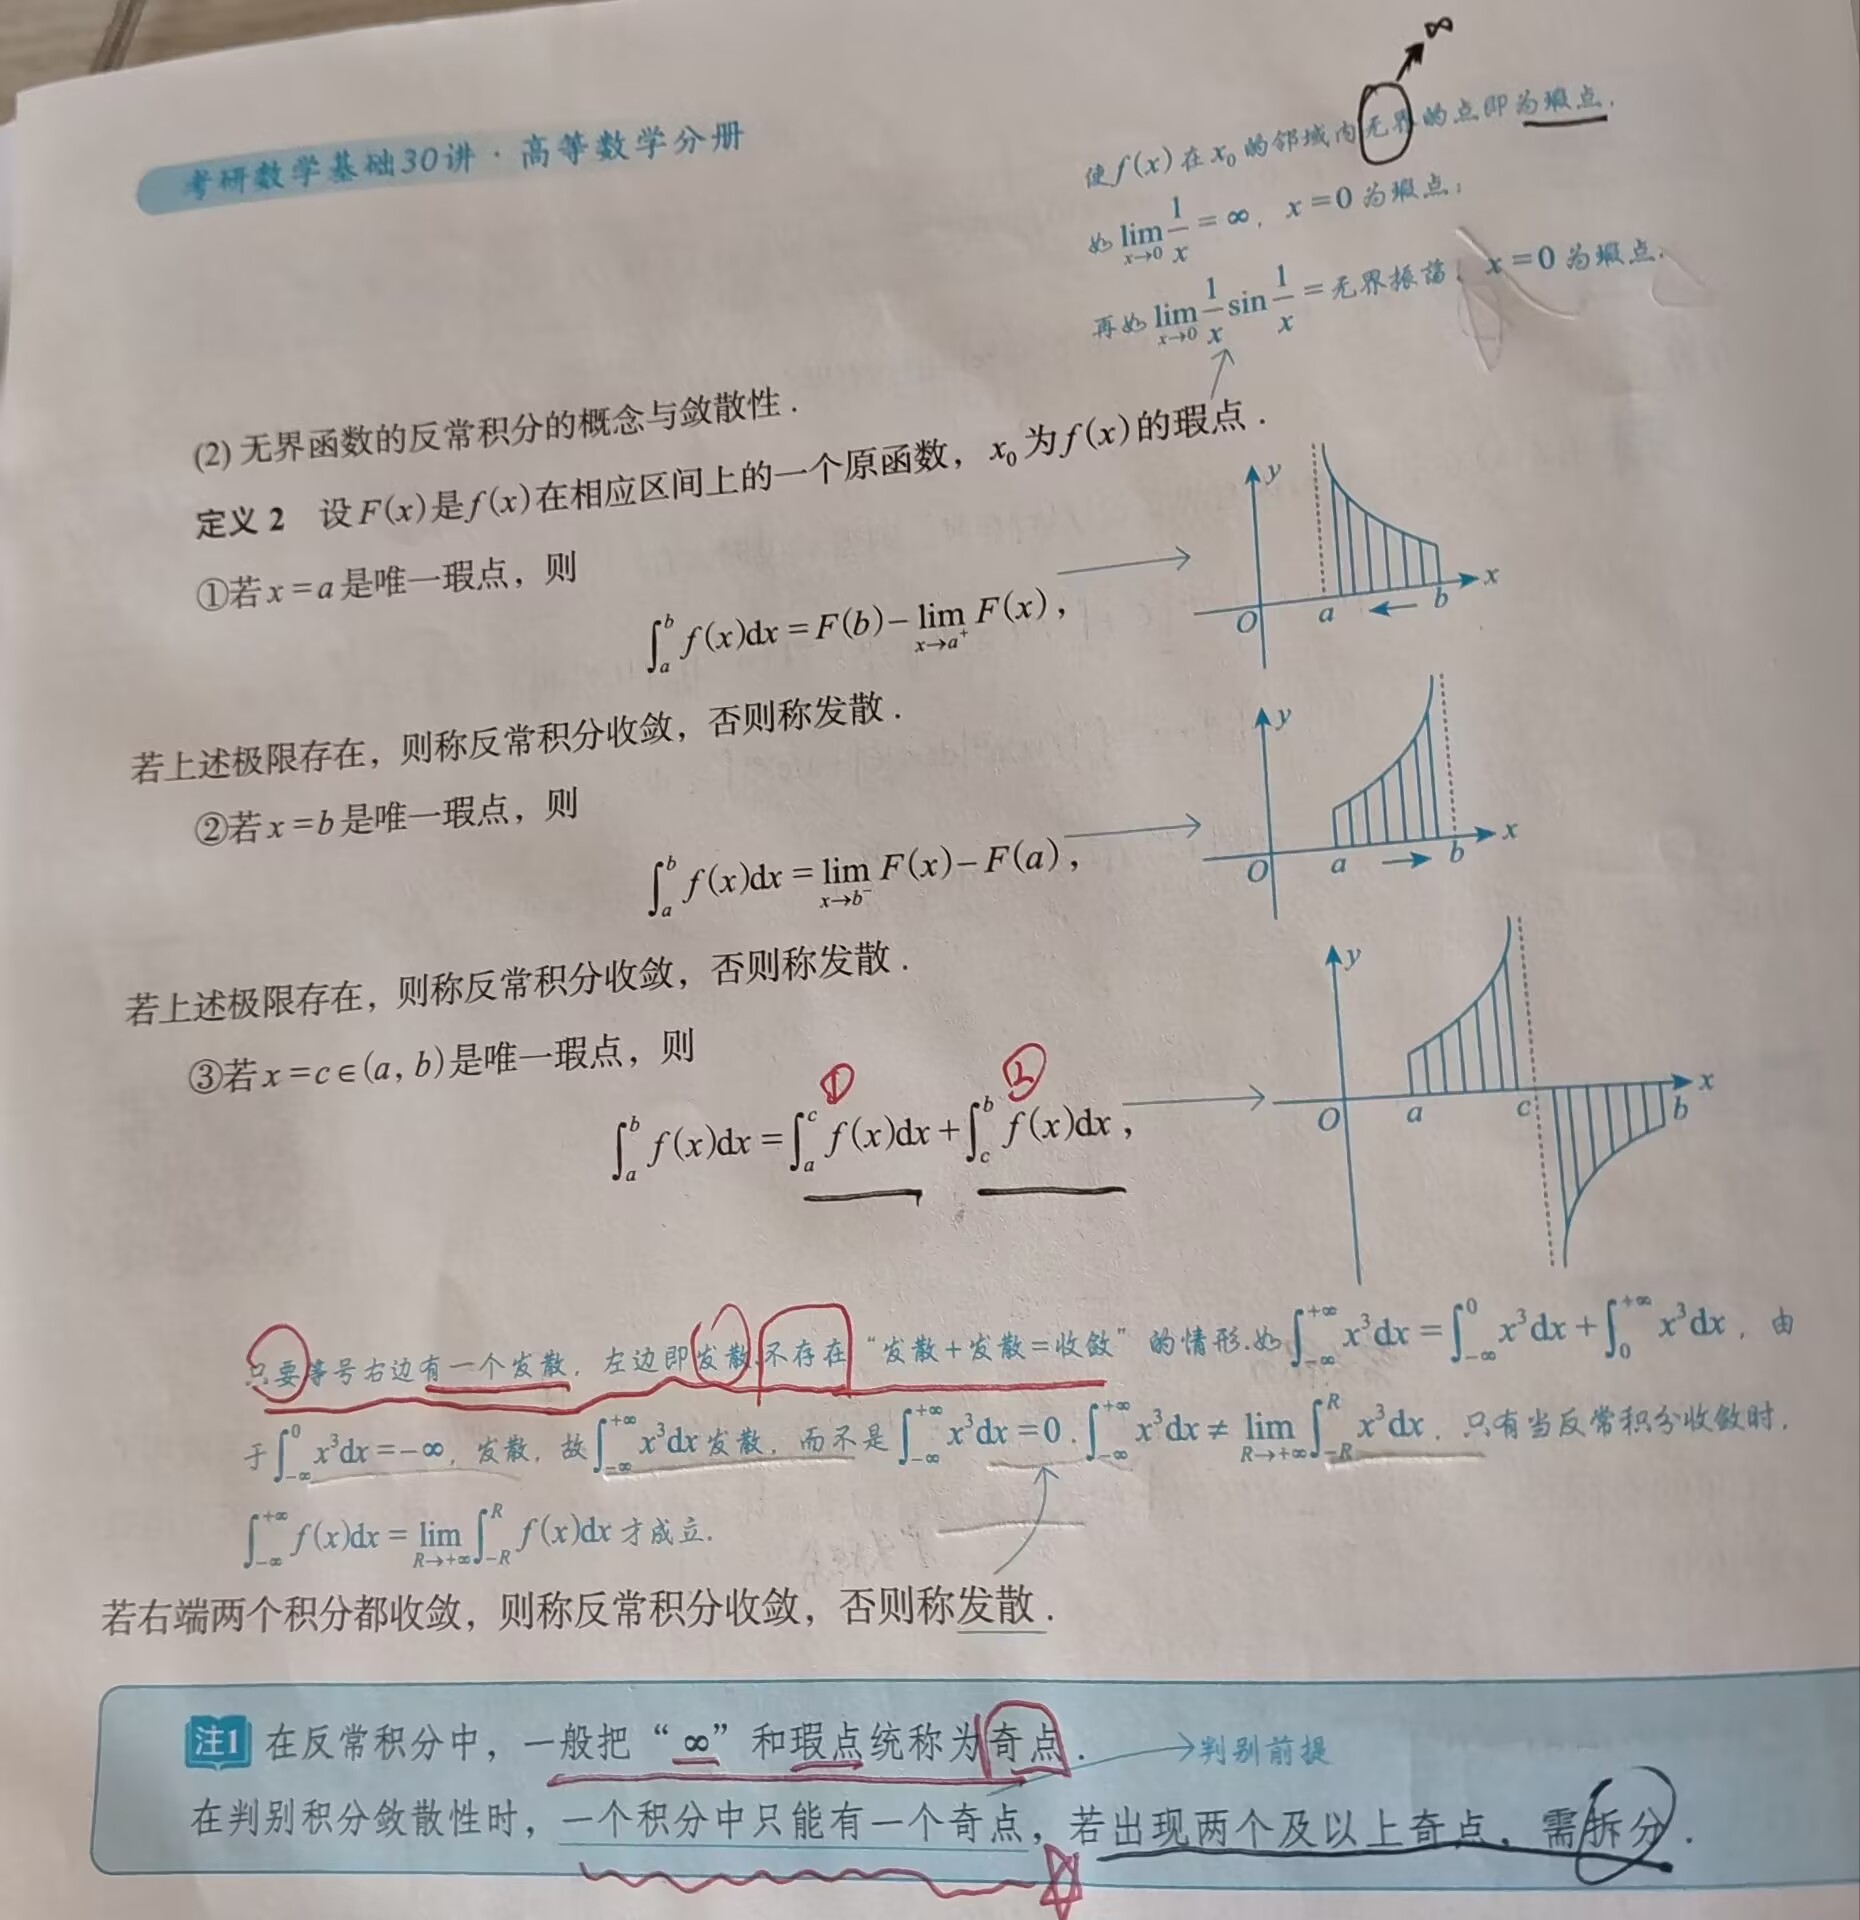 ∞
考研数学基础30讲·高等数学分册
使f(x)在x₀的邻域内无界的点即为瑕点.
如 lim_{x→0} 1/x = ∞, x=0为瑕点;
再如 lim_{x→0} 1/x sin 1/x = 无界振荡, x=0为瑕点.
(2) 无界函数的反常积分的概念与敛散性.
定义2 设F(x)是f(x)在相应区间上的一个原函数，x₀为f(x)的瑕点.
①若x=a是唯一瑕点，则
∫_a^b f(x)dx = F(b) − lim_{x→a⁺} F(x),
y
O a b x
若上述极限存在，则称反常积分收敛，否则称发散.
②若x=b是唯一瑕点，则
∫_a^b f(x)dx = lim_{x→b⁻} F(x) − F(a),
y
O a b x
若上述极限存在，则称反常积分收敛，否则称发散.
③若x=c∈(a, b)是唯一瑕点，则
① ②
∫_a^b f(x)dx = ∫_a^c f(x)dx + ∫_c^b f(x)dx,
y
O a c b x
只要等号右边有一个发散，左边即发散,不存在“发散+发散=收敛”的情形.如 ∫_{−∞}^{+∞} x³dx = ∫_{−∞}^0 x³dx + ∫_0^{+∞} x³dx，由
于 ∫_{−∞}^0 x³dx = −∞，发散，故 ∫_{−∞}^{+∞} x³dx 发散，而不是 ∫_{−∞}^{+∞} x³dx = 0. ∫_{−∞}^{+∞} x³dx ≠ lim_{R→+∞} ∫_{−R}^R x³dx，只有当反常积分收敛时，
∫_{−∞}^{+∞} f(x)dx = lim_{R→+∞} ∫_{−R}^R f(x)dx 才成立.
若右端两个积分都收敛，则称反常积分收敛，否则称发散.
注1 在反常积分中，一般把“∞”和瑕点统称为奇点.
判别前提
在判别积分敛散性时，一个积分中只能有一个奇点，若出现两个及以上奇点，需拆分.